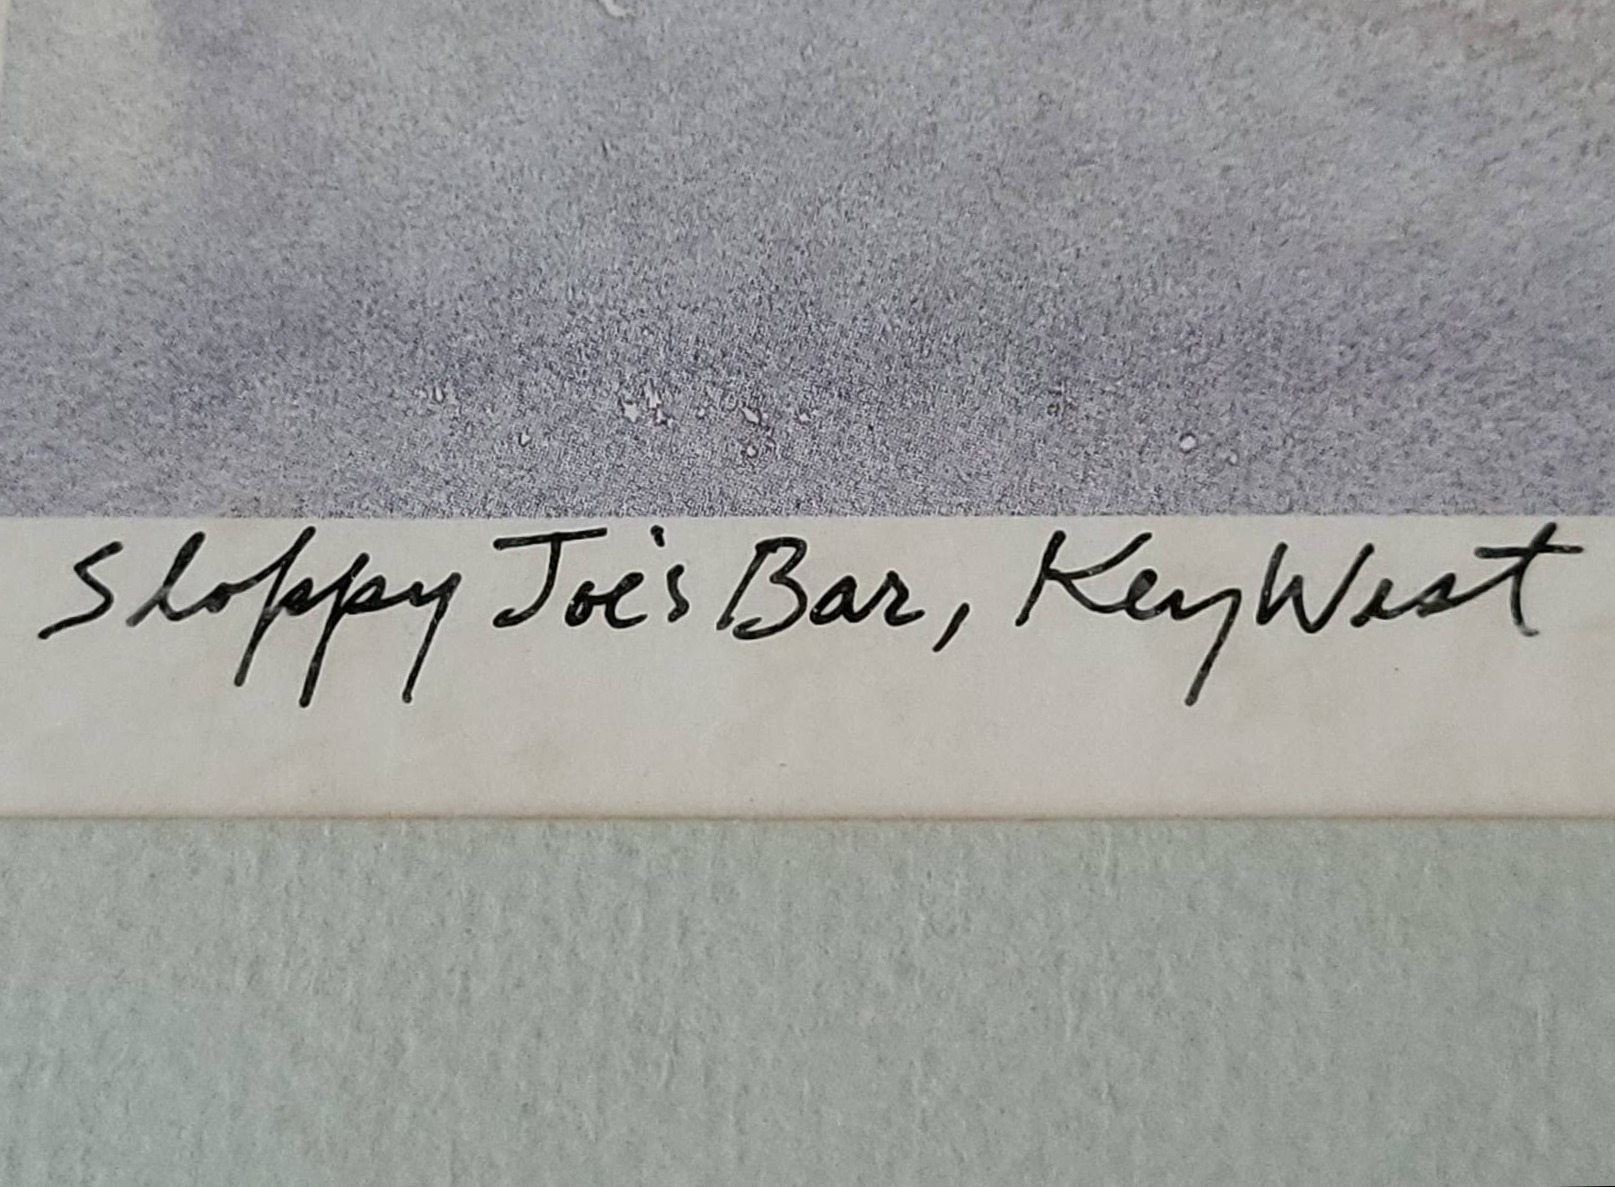 Sloppy Joe's Bar, Key West